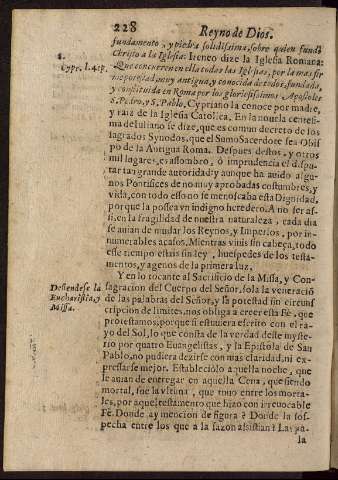 228
Reyno de Dios.
fundamento, y piedra solidissima, sobre quien fundò
Christo a la Iglesia. Ireneo dize la Iglesia Romana:
Que concurren en ella todas las Iglesias, por la mas fir
me potestad, muy antigua, y conocida de todos, fundada,
y constituida en Roma por los gloriosissimos Apostoles
S. Pedro, y S. Pablo, Cypriano la conoce por madre,
y raiz de la Iglesia Catolica. En la nouela centesi-
ma de Iuliano se dize, que es comun decreto de los
sagrados Synodos, que el Sumo Sacerdote sea Obis
po de la Antigua Roma. Despues destos, y otros
mil lugares, es assombro, ò imprudencia el dispu-
tar tan grande autoridad: y aunque ha auido algu-
nos Pontifices de no muy aprobadas costumbres, y
vida, con todo esso no se menoscaba esta Dignidad,
por que la possea vn indigno heredero. A no ser as-
si, en la fragilidad de nuestra naturaleza, cada dia
se auian de mudar los Reynos, y Imperios, por in-
numerables acasos. Mientras viuis sin cabeça, todo
esse tiempo estais sin ley, huespedes de los testa-
mentos, y agenos de la primera luz.
Y en lo tocante al Sacrificio de la Missa, y Con-
sagracion del Cuerpo del Señor, sola la veneraciō
de las palabras del Señor, y la potestad sin circuns
cripcion de limites, nos obliga a creer esta Fè, que
protestamos, porque si estuuiera escrito con el ra-
yo del Sol, lo que consta de la verdad deste myste-
rio por quatro Euangelistas, y la Epistola de San
Pablo, no pudiera dezirse con mas claridad, ni ex-
pressarse mejor. Establecìòlo aquella noche, que
se auian de entregar en aquella Cena, que siendo
mortal, fue la vltima, que tuuo entre los morta-
les, por aquel testamento que hizo con irreuocable
Fè. Donde ay mencion de figura? Donde la sos-
pecha entre los que a la sazon assistian? Las pa-
la
1.
Cypr. l. 4. ep.
Defiendese la
Eucharistia, y
Missa.